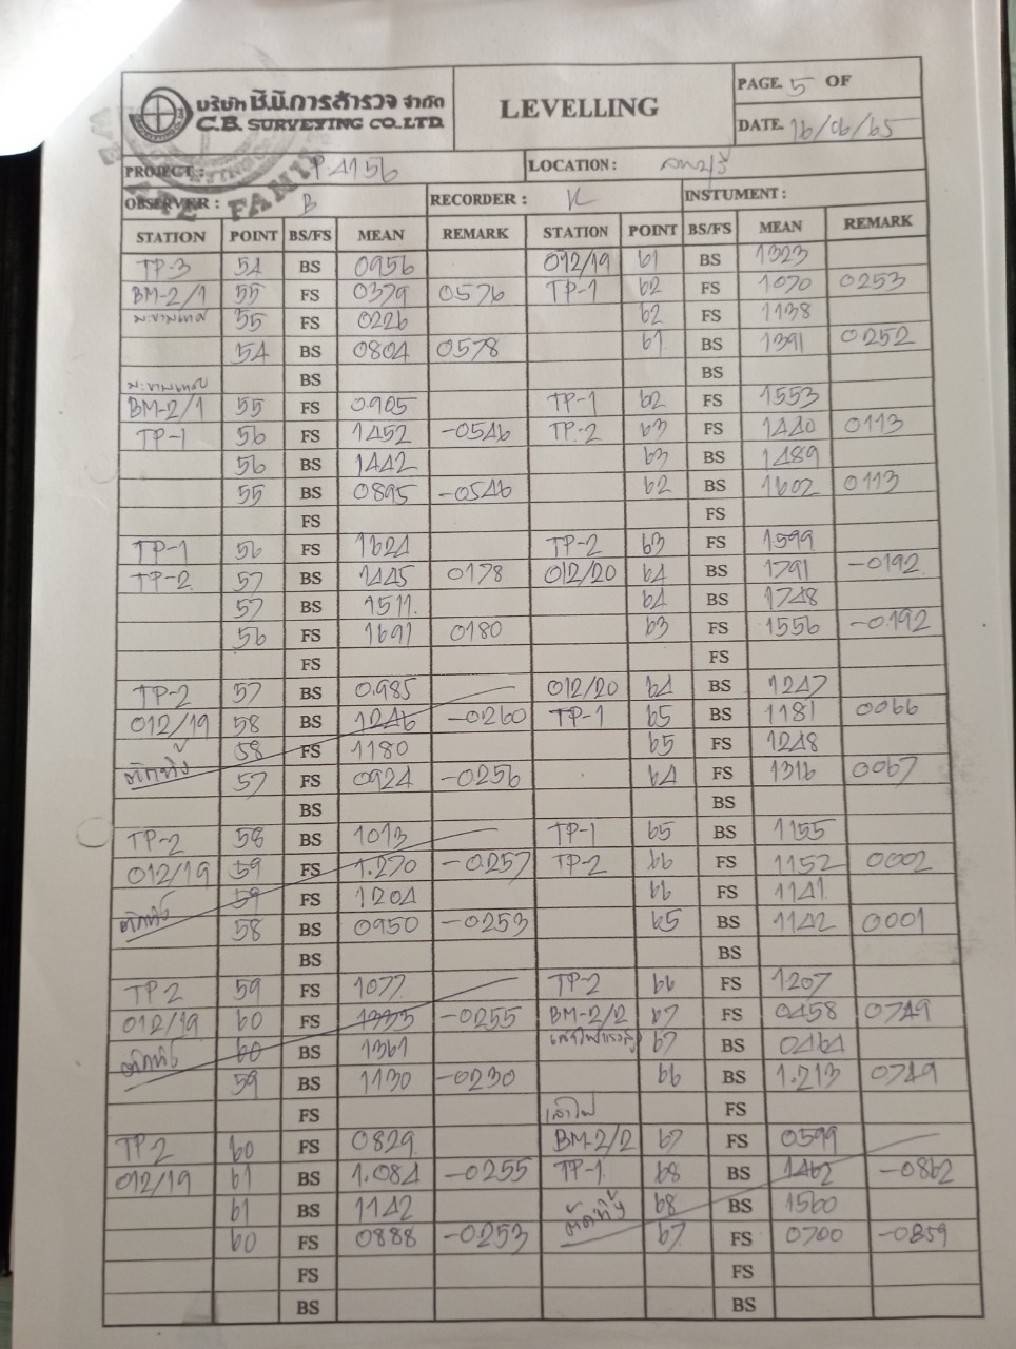 บริษัท ซี.บี.การสำรวจ จำกัด
C.B. SURVEYING CO.,LTD.
LEVELLING
PAGE. 5 OF
DATE. 16/06/65
PROJECT : P.4156
LOCATION :
OBSERVER : B RECORDER : K INSTUMENT :
STATION POINT BS/FS MEAN REMARK STATION POINT BS/FS MEAN REMARK
TP-3 54 BS 0956 012/19 61 BS 1323
BM-2/1 55 FS 0379 0576 TP-1 62 FS 1070 0253
55 FS 0226 62 FS 1138
54 BS 0804 0578 61 BS 1391 0252
BS BS
BM-2/1 55 FS 0905 TP-1 62 FS 1553
TP-1 56 FS 1452 -0546 TP-2 63 FS 1440 0113
56 BS 1442 63 BS 1489
55 BS 0895 -0546 62 BS 1602 0113
FS FS
TP-1 56 FS 1624 TP-2 63 FS 1599
TP-2 57 BS 1445 0178 012/20 64 BS 1791 -0192
57 BS 1511 64 BS 1748
56 FS 1691 0180 63 FS 1556 -0192
FS FS
TP-2 57 BS 0985 012/20 64 BS 1247
012/19 58 BS 1246 -0260 TP-1 65 BS 1181 0066
ตัดทิ้ง 58 FS 1180 65 FS 1248
57 FS 0924 -0256 64 FS 1316 0067
BS BS
TP-2 58 BS 1013 TP-1 65 BS 1155
012/19 59 FS 1.270 -0257 TP-2 66 FS 1152 0002
ตัดทิ้ง 59 FS 1204 66 FS 1141
58 BS 0950 -0253 65 BS 1142 0001
BS BS
TP2 59 FS 1077 TP-2 66 FS 1207
012/19 60 FS 1333 -0255 BM-2/2 67 FS 0458 0749
ตัดทิ้ง 60 BS 1361 67 BS 0464
59 BS 1130 -0230 66 BS 1.213 0749
FS เสาไฟ FS
TP2 60 FS 0829 BM-2/2 67 FS 0599
012/19 61 BS 1.084 -0255 TP-1 68 BS 1462 -0862
61 BS 1142 ตัดทิ้ง 68 BS 1560
60 FS 0888 -0253 67 FS 0700 -0859
FS FS
BS BS